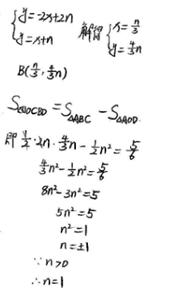 {y=2x+2n
y=x+n 解得 {x=n/3
y=4/3n
B(n/3, 4/3n)
S四OCBD = S△ABC - S△AOD
即 1/2·2n·4/3n - 1/2n² = 5/6
4/3n² - 1/2n² = 5/6
8n² - 3n² = 5
5n² = 5
n² = 1
n = ±1
∵ n>0
∴ n=1